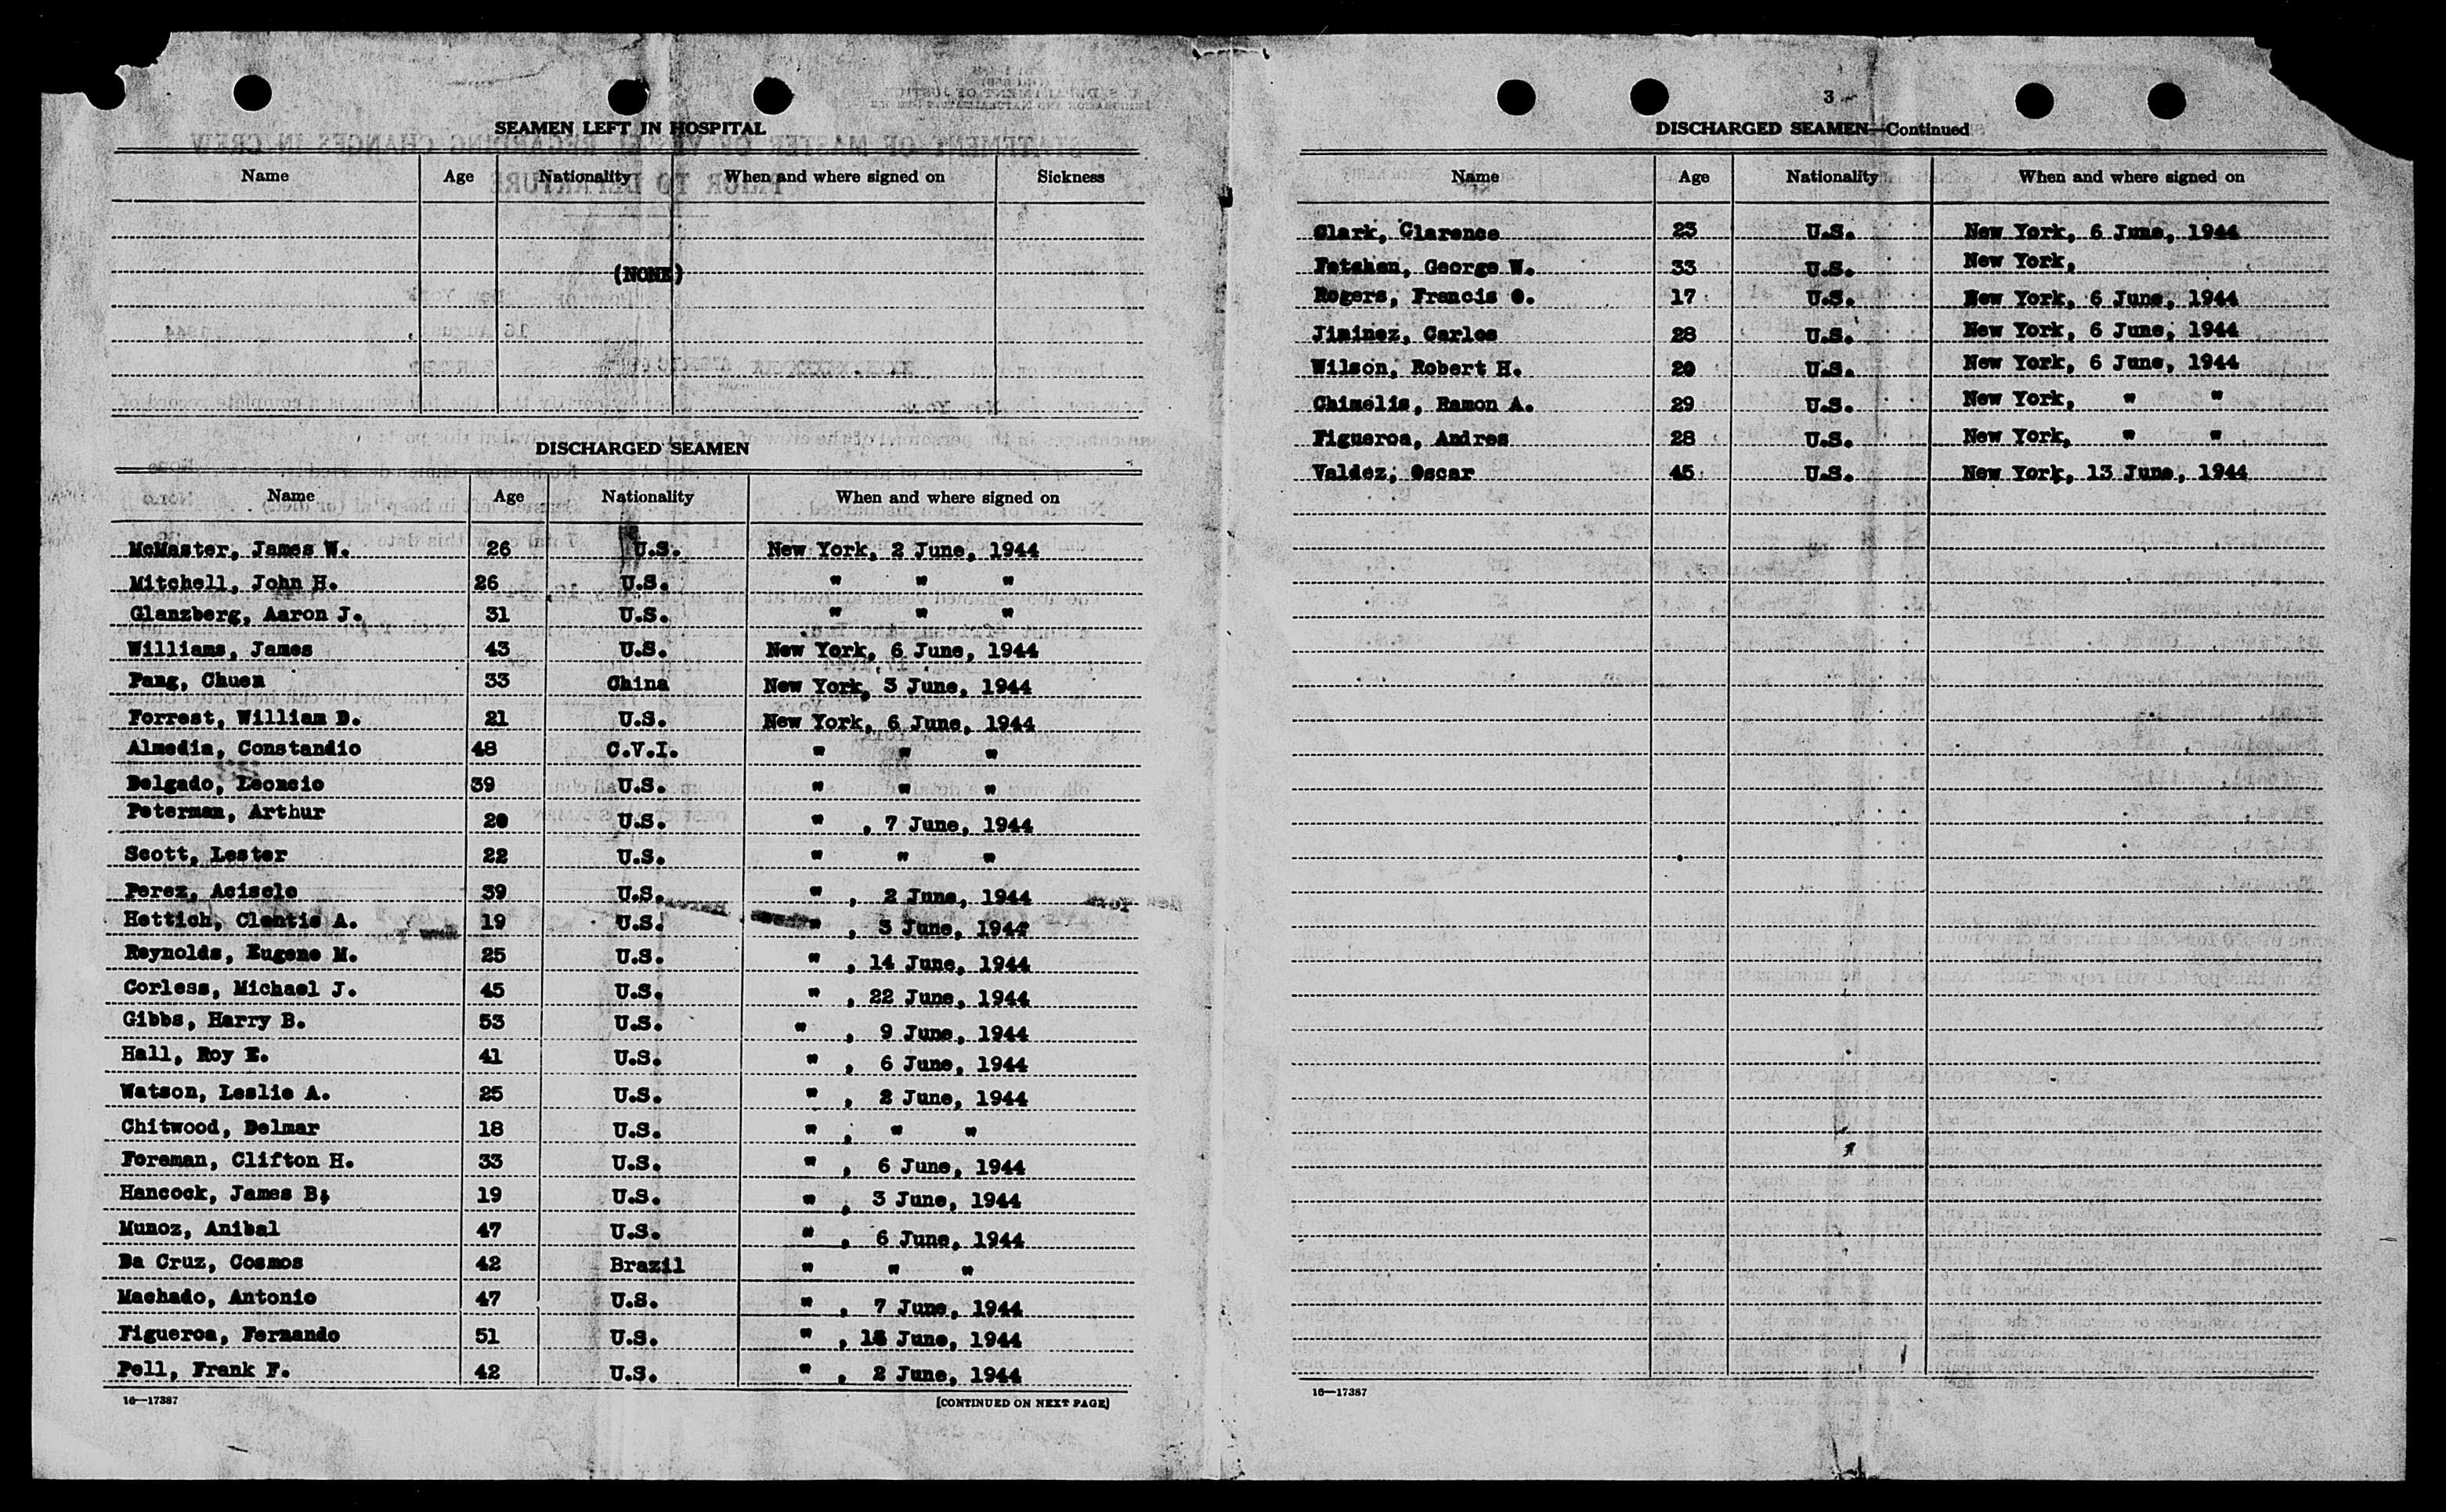 SEAMEN LEFT IN HOSPITAL
Name Age Nationality When and where signed on Sickness
(NONE)
DISCHARGED SEAMEN
Name Age Nationality When and where signed on
McMaster, James W. 26 U.S. New York, 2 June, 1944
Mitchell, John H. 26 U.S. " " "
Glanzberg, Aaron J. 31 U.S. " " "
Williams, James 43 U.S. New York, 6 June, 1944
Pang, Chuen 33 China New York, 3 June, 1944
Forrest, William D. 21 U.S. New York, 6 June, 1944
Almedia, Constandio 48 C.V.I. " " "
Delgado, Leoncio 39 U.S. " " "
Peterman, Arthur 20 U.S. " , 7 June, 1944
Scott, Lester 22 U.S. " " "
Perez, Acisclo 39 U.S. " , 2 June, 1944
Hettich, Clentis A. 19 U.S. " , 3 June, 1944
Reynolds, Eugene M. 25 U.S. " , 14 June, 1944
Corless, Michael J. 45 U.S. " , 22 June, 1944
Gibbs, Harry B. 53 U.S. " , 9 June, 1944
Hall, Roy E. 41 U.S. " , 6 June, 1944
Watson, Leslie A. 25 U.S. " , 2 June, 1944
Chitwood, Delmar 18 U.S. " , " "
Foreman, Clifton H. 33 U.S. " , 6 June, 1944
Hancock, James B. 19 U.S. " , 3 June, 1944
Munoz, Anibal 47 U.S. " , 6 June, 1944
Da Cruz, Cosmos 42 Brazil " " "
Machado, Antonio 47 U.S. " , 7 June, 1944
Figueroa, Fernando 51 U.S. " , June, 1944
Pell, Frank F. 42 U.S. " , 2 June, 1944
16—17387 [CONTINUED ON NEXT PAGE]
3
DISCHARGED SEAMEN—Continued
Name Age Nationality When and where signed on
Clark, Clarence 23 U.S. New York, 6 June, 1944
Fetchen, George W. 33 U.S. New York,
Rogers, Francis O. 17 U.S. New York, 6 June, 1944
Jiminez, Carlos 28 U.S. New York, 6 June, 1944
Wilson, Robert H. 20 U.S. New York, 6 June, 1944
Chimelis, Ramon A. 29 U.S. New York, " "
Figueroa, Andres 28 U.S. New York, " "
Valdez, Oscar 45 U.S. New York, 13 June, 1944
16—17387